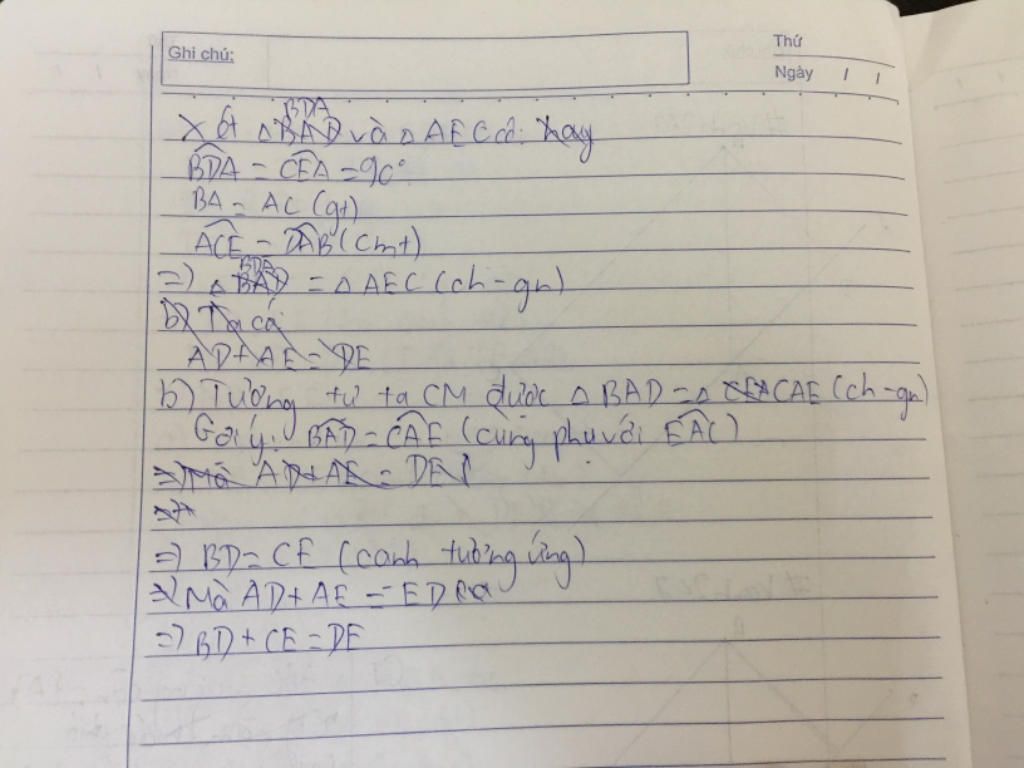 Ghi chú:
Thứ
Ngày / /
BDA
Xét △BAD và △AEC có: hay
BDA = CEA = 90°
BA = AC (gt)
ACE = DAB (cmt)
BDA
=) △BAD = △AEC (ch-gn)
b) Ta có
AD + AE = DE
b) Tương tự ta CM được △BAD = △CEA CAE (ch-gn)
Gợi ý: BAD = CAE (cùng phụ với EAC)
=) Mà AD + AE = DE
=)
=) BD = CE (cạnh tương ứng)
=) Mà AD + AE = ED
=) BD + CE = DE